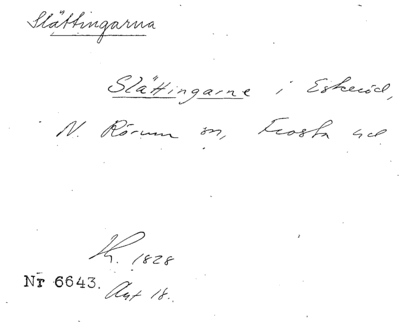 Slättingarna
Slättingarne i Eskeröd,
N. Rörum sn, Frosta hd
1828
Nr 6643.
18.